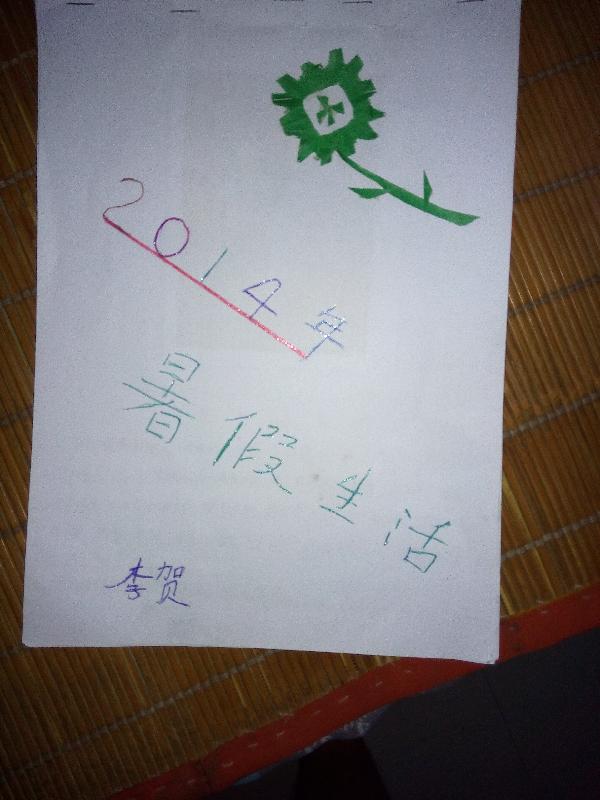 2014年
暑假生活
李贺